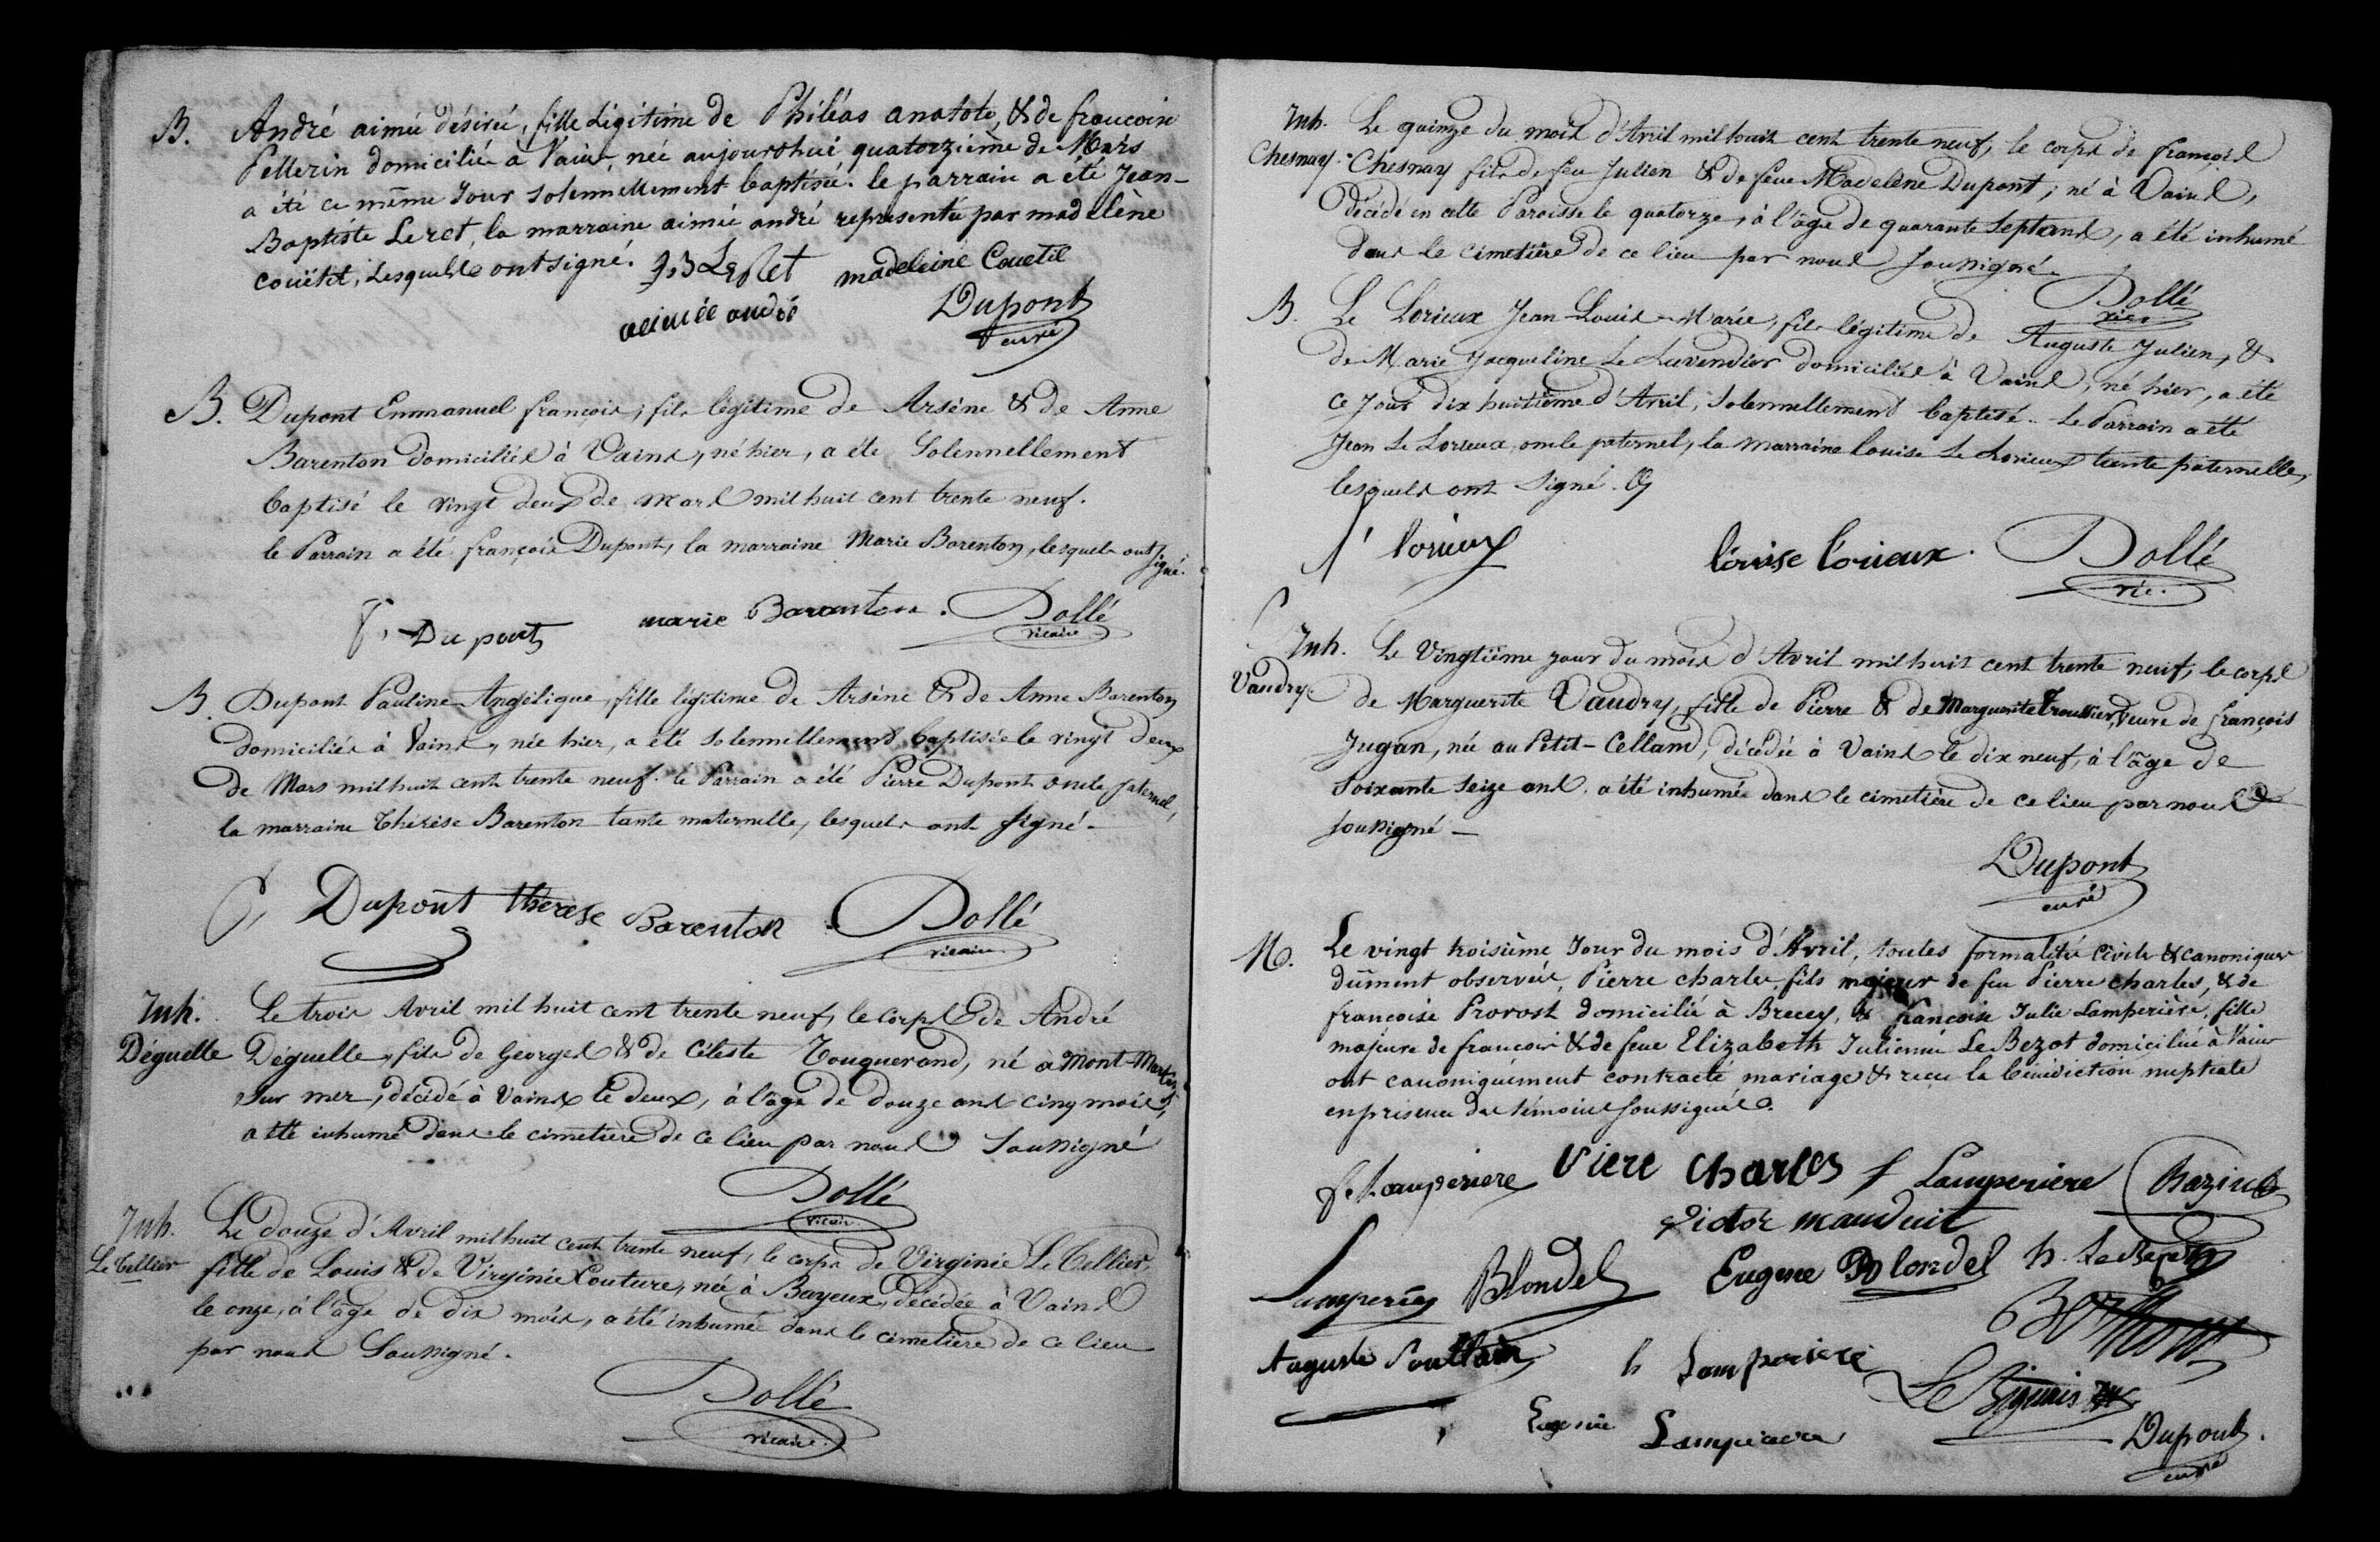 B. André aimée désirée, fille Légitime de Philéas anatole, & de francoise
Pellerin domiciliée à Vains née aujourdhui quatorzième de Mars
a été ce même Jour solennellement baptisée. le parrain a été Jean-
Baptiste Leret, la marraine aimée andré representée par madelène
couëtil, Lesquels ont signé. JB LeRet madeleine Couetil
aimée andré Dupont
curé
B. Dupont Emmanuel françois, fils légitime de Arsène & de Anne
Barenton domiciliés à Vains, né hier, a été Solennellement
baptisé le vingt deux de Mars mil huit cent trente neuf.
le Parrain a été françois Dupont, la marraine Marie Barenton, lesquels ont signé.
f. Dupont marie Baranton. Dollé
vicaire
B. Dupont Pauline Angélique, fille légitime de Arsène & de Anne Barenton
domiciliés à Vains, née hier, a été solennellement baptisée le vingt deux
de Mars mil huit cent trente neuf. le Parrain a été Pierre Dupont oncle paternel,
la marraine Thérèse Barenton tante maternelle, lesquels ont signé.-
P, Dupont therese Barenton. Dollé
vicaire
Inh. Le trois Avril mil huit cent trente neuf, le corps de André
Déguelle Déguelle, fils de Georges & de Céleste Touquerand, né à Mont-Martin
sur mer, décédé à Vains le deux, à l'âge de douze ans cinq mois,
a été inhumé dans le cimetière de ce lieu par nous Soussigné
Dollé
vicair
Inh. Le douze d'Avril mil huit cent trente neuf, le corps de Virginie Le Tellier,
Le Tellier fille de Louis & de Virginie Couture, née à Bayeux, décédée à Vains
le onze, à l'âge de dix mois, a été inhumée dans le cimetière de ce lieu
par nous Soussigné.
Dollé
vicaire.
Inh. Le quinze du mois d'Avril mil huit cent trente neuf, le corps de françois
Chesnay.- Chesnay fils de feu Julien & de feue Madelène Dupont, né à Vains,
décédé en cette Paroisse le quatorze, à l'âge de quarante Sept ans, a été inhumé
dans le cimetière de ce lieu par nous soussigné
Dollé
vic.
B. Le Lorieux Jean Louis-Marie, fils légitime de Auguste Julien, &
de Marie Jacqueline Le Lavendier domiciliés à Vains, né hier, a été
ce Jour dix huitième d'Avril, solennellement baptisé.. Le Parrain a été
Jean Le Lorieux, oncle paternel, la marraine Louise Le Lorieux tante paternelle,
lesquels ont signé.
J' lorieux louise lorieux. Dollé
vic.
Inh. Le Vingtième jour du mois d'Avril mil huit cent trente neuf, le corps
Vaudry. de Marguerite Vaudry, fille de Pierre & de Marguerite Troussier, veuve de françois
Jugan, née au Petit-Celland, décédée à Vains le dix neuf, à l'âge de
soixante seize ans, a été inhumée dans le cimetière de ce lieu par nous
soussigné -
Dupont
curé
M. Le vingt troisième Jour du mois d'Avril, toutes formalités civiles & canoniques
dûment observées, Pierre charles, fils majeur de feu Pierre charles, & de
francoise Provost domicilié à Brecey, & francoise Julie Lamperière, fille
majeure de francois & de feue Elizabeth Julienne Le Bezot domiciliée à Vains
ont canoniquement contracté mariage & reçu la bénédiction nuptiale
en présence des témoins soussignés.
f. Lamperiere Piere Charles f Lamperiere
Victor mauduit
Lamperière Blondel Eugene Blondel h.
Auguste h Lamperiere
Eugenie Lamperiere Dupont.
curé